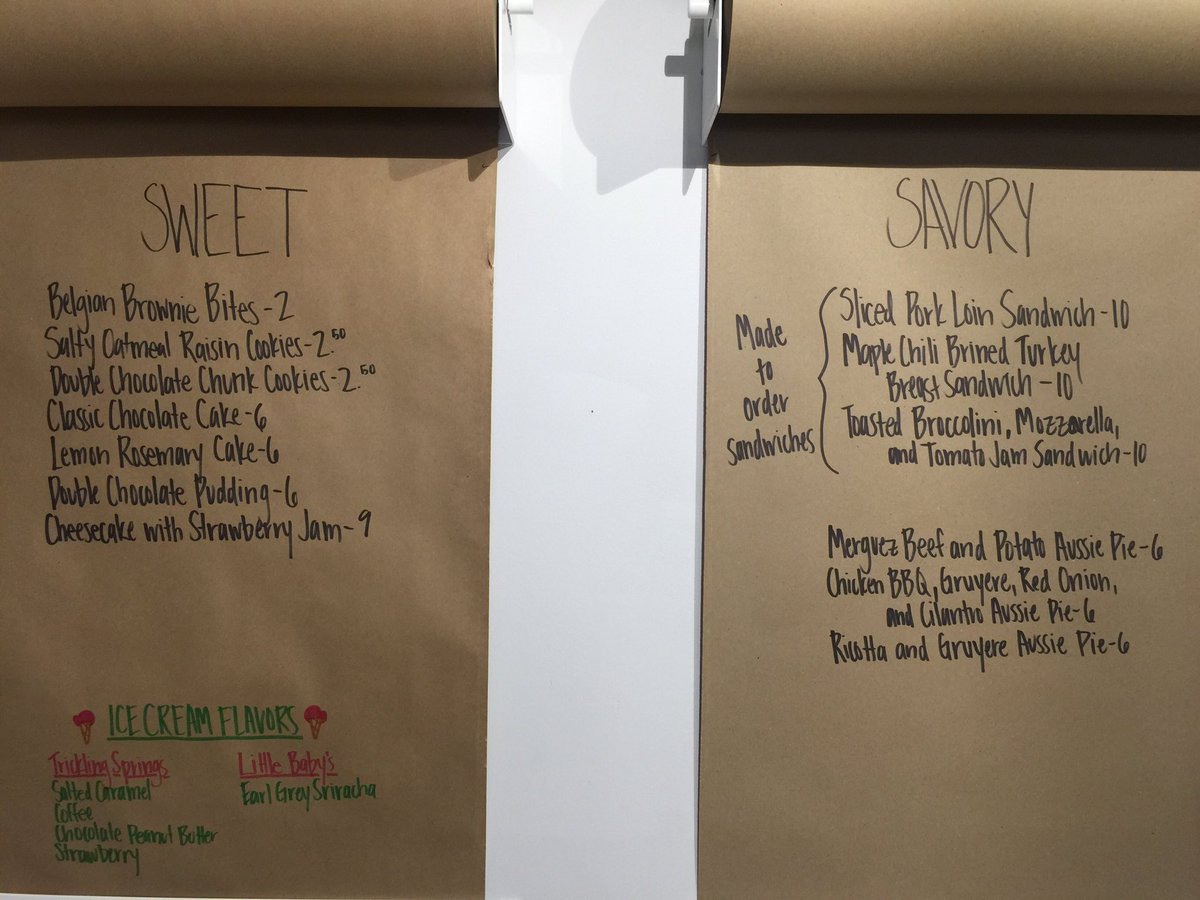 SWEET
Belgian Brownie Bites-2
Salty Oatmeal Raisin Cookies-2.50
Double Chocolate Chunk Cookies-2.50
Classic Chocolate Cake-6
Lemon Rosemary Cake-6
Double Chocolate Pudding-6
Cheesecake with Strawberry Jam-9
ICE CREAM FLAVORS
Trickling Springs
Salted Caramel
Coffee
Chocolate Peanut Butter
Strawberry
Little Baby's
Earl Grey Sriracha
SAVORY
Made
to
order
sandwiches
Sliced Pork Loin Sandwich-10
Maple Chili Brined Turkey
Breast Sandwich-10
Toasted Broccolini, Mozzarella,
and Tomato Jam Sandwich-10
Merguez Beef and Potato Aussie Pie-6
Chicken BBQ, Gruyere, Red Onion,
and Cilantro Aussie Pie-6
Ricotta and Gruyere Aussie Pie-6